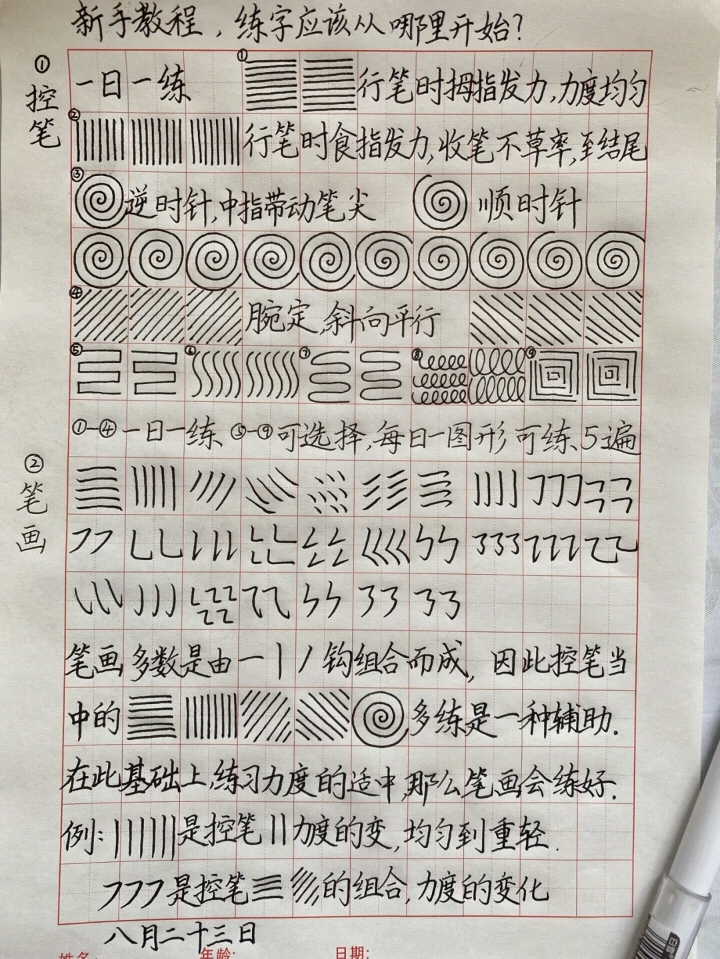 新手教程，练字应该从哪里开始？
①控笔
一日一练 ① 行笔时拇指发力，力度均匀
② 行笔时食指发力，收笔不草率，至结尾
③ 逆时针，中指带动笔尖 顺时针
④ 腕定，斜向平行
⑤ ⑥ ⑦ ⑧ ⑨
①-④一日一练 ⑤-⑨可选择，每日一图形可练5遍
②笔画
笔画多数是由一丨丿钩组合而成，因此控笔当
中的 多练是一种辅助.
在此基础上，练习力度的适中，那么笔画会练好.
例： 是控笔 力度的变，均匀到重轻.
是控笔 的组合，力度的变化
八月二十三日
姓名： 年龄： 日期：